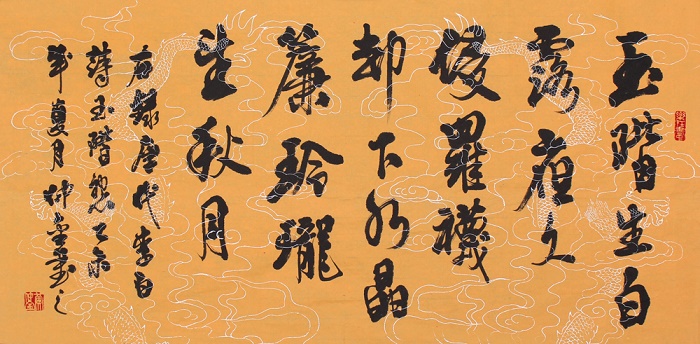 玉階生白
露夜久
侵羅襪
却下水晶
簾玲瓏
望秋月
右録唐代李白
詩玉階怨乙未
年夏月仲